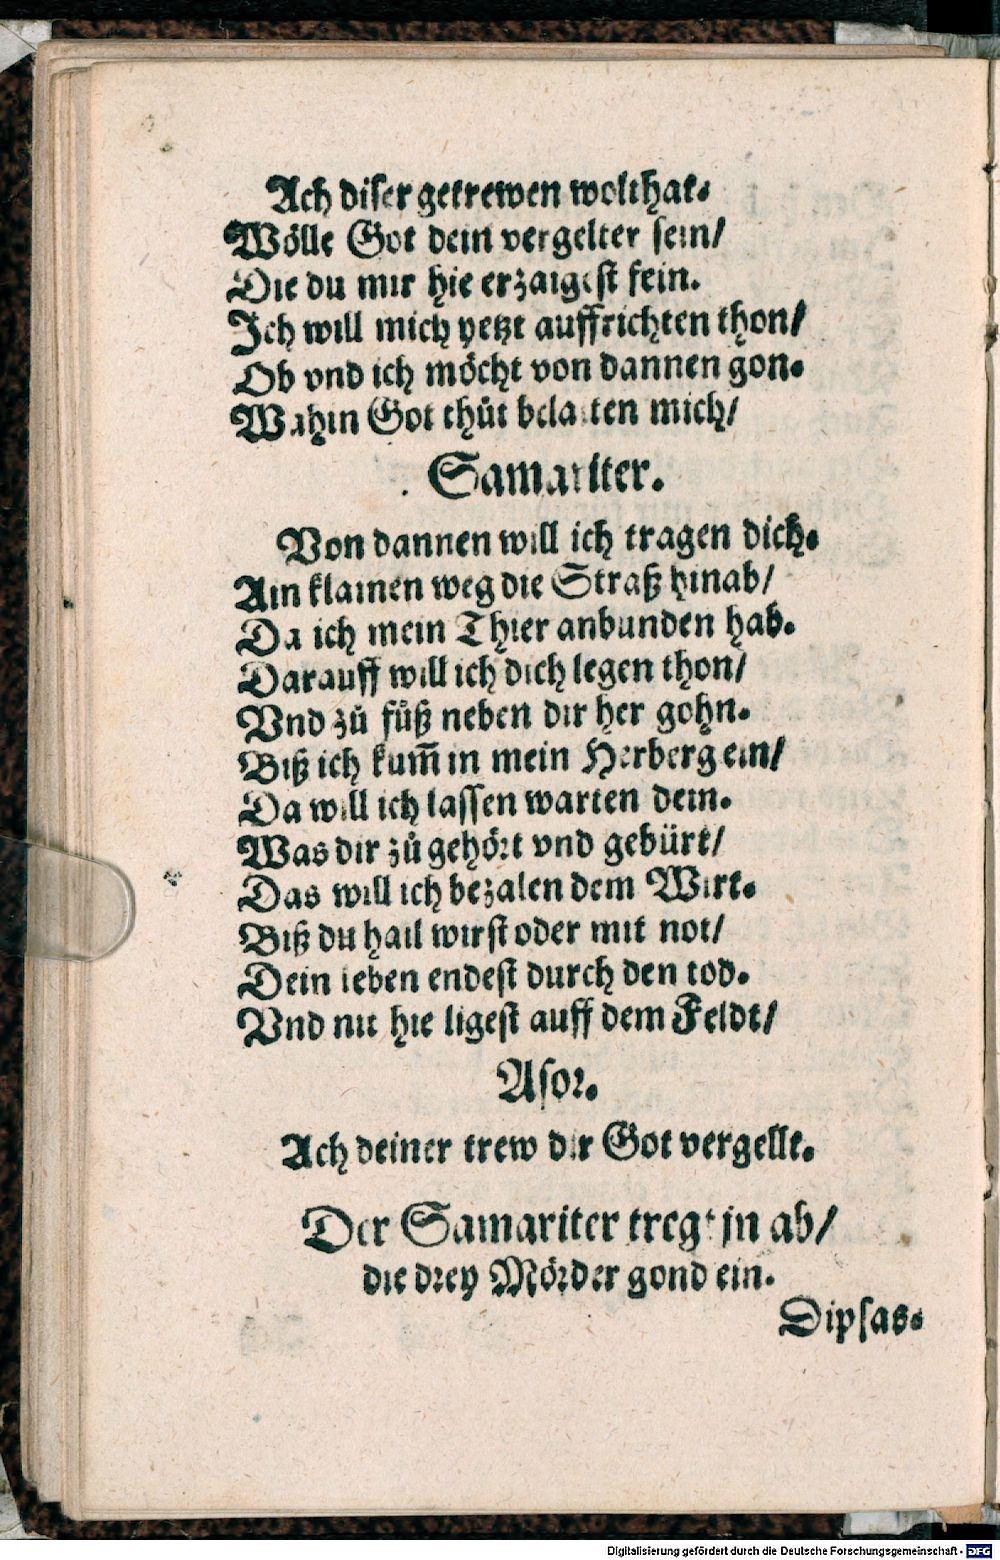 Ach diser getrewen wolthat.
Wölle Got dein vergelter sein/
Die du mir hie erzaigest fein.
Ich will mich yetzt auffrichten thon/
Ob vnd ich möcht von dannen gon.
Wahin Got thůt belaiten mich/
Samariter.
Von dannen will ich tragen dich.
Ain klainen weg die Straß hinab/
Da ich mein Thier anbunden hab.
Darauff will ich dich legen thon/
Vnd zů fůß neben dir her gohn.
Biß ich kum̄ in mein Herberg ein/
Da will ich lassen warten dein.
Was dir zů gehört vnd gebürt/
Das will ich bezalen dem Wirt.
Biß du hail wirst oder mit not/
Dein leben endest durch den tod.
Vnd nit hie ligest auff dem Feldt/
Asor.
Ach deiner trew dir Got vergellt.
Der Samariter tregt jn ab/
die drey Mörder gond ein.
Dipsas.
Digitalisierung gefördert durch die Deutsche Forschungsgemeinschaft - DFG